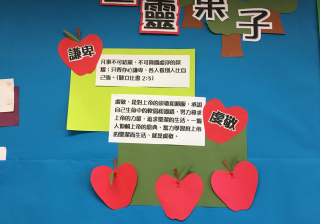 靈果子
謙卑
凡事不可結黨,不可貪圖虛浮的榮
耀;只要存心謙卑,各人看別人比自
己強。(腓立比書 2:3)
虔敬
虔敬,是對上帝的崇敬和順服,承認
自己生命中的軟弱和過錯,努力尋求
上帝的力量,追求聖潔的生活。一個
人動輒上帝的恩典,努力學習過上帝
的聖潔的生活,就是虔敬。